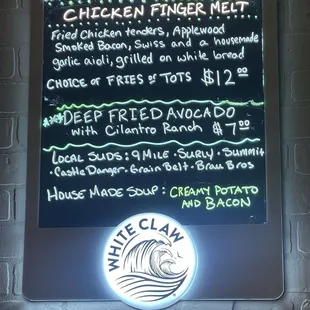 CHICKEN FINGER MELT
Fried Chicken tenders, Applewood
Smoked Bacon, Swiss and a housemade
garlic aioli, grilled on white bread
CHOICE OF FRIES OR TOTS $12.00
DEEP FRIED AVOCADO
with Cilantro Ranch $7.00
LOCAL SUDS: 9 MILE · SURLY · SUMMIT
· Castle Danger · Grain Belt · Brau Bros
HOUSE MADE SOUP: CREAMY POTATO
AND BACON
WHITE CLAW